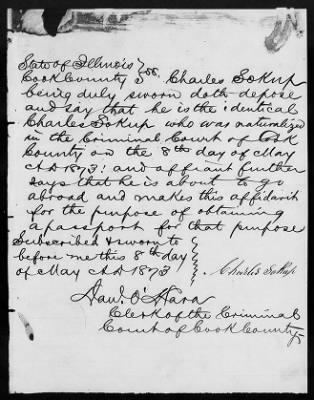 State of Illinois }
Cook County } ss. Charles Sokup
being duly sworn doth depose
and say that he is the identical
Charles Sokup who was naturalized
in the Criminal Court of Cook
County on the 8th day of May
A.D 1873; and affiant further
says that he is about to go
abroad and makes this affidavit
for the purpose of obtaining
a passport for that purpose
Subscribed & sworn to
before me this 8th day
of May A.D 1873
Charles Sokup
Dan. O'Hara
Clerk of the Criminal
Court of Cook County